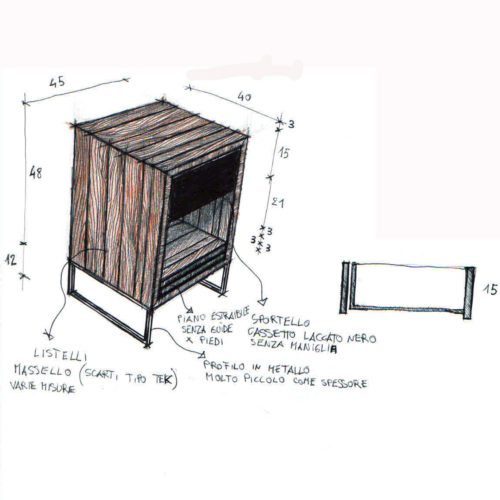 45
40
3
15
48
21
3
3
3
12
15
PIANO ESTRAIBILE
SENZA GUIDE
X PIEDI
SPORTELLO
CASSETTO LACCATO NERO
SENZA MANIGLIA
LISTELLI
MASSELLO (SCARTI TIPO TEK)
VARIE MISURE
PROFILO IN METALLO
MOLTO PICCOLO COME SPESSORE